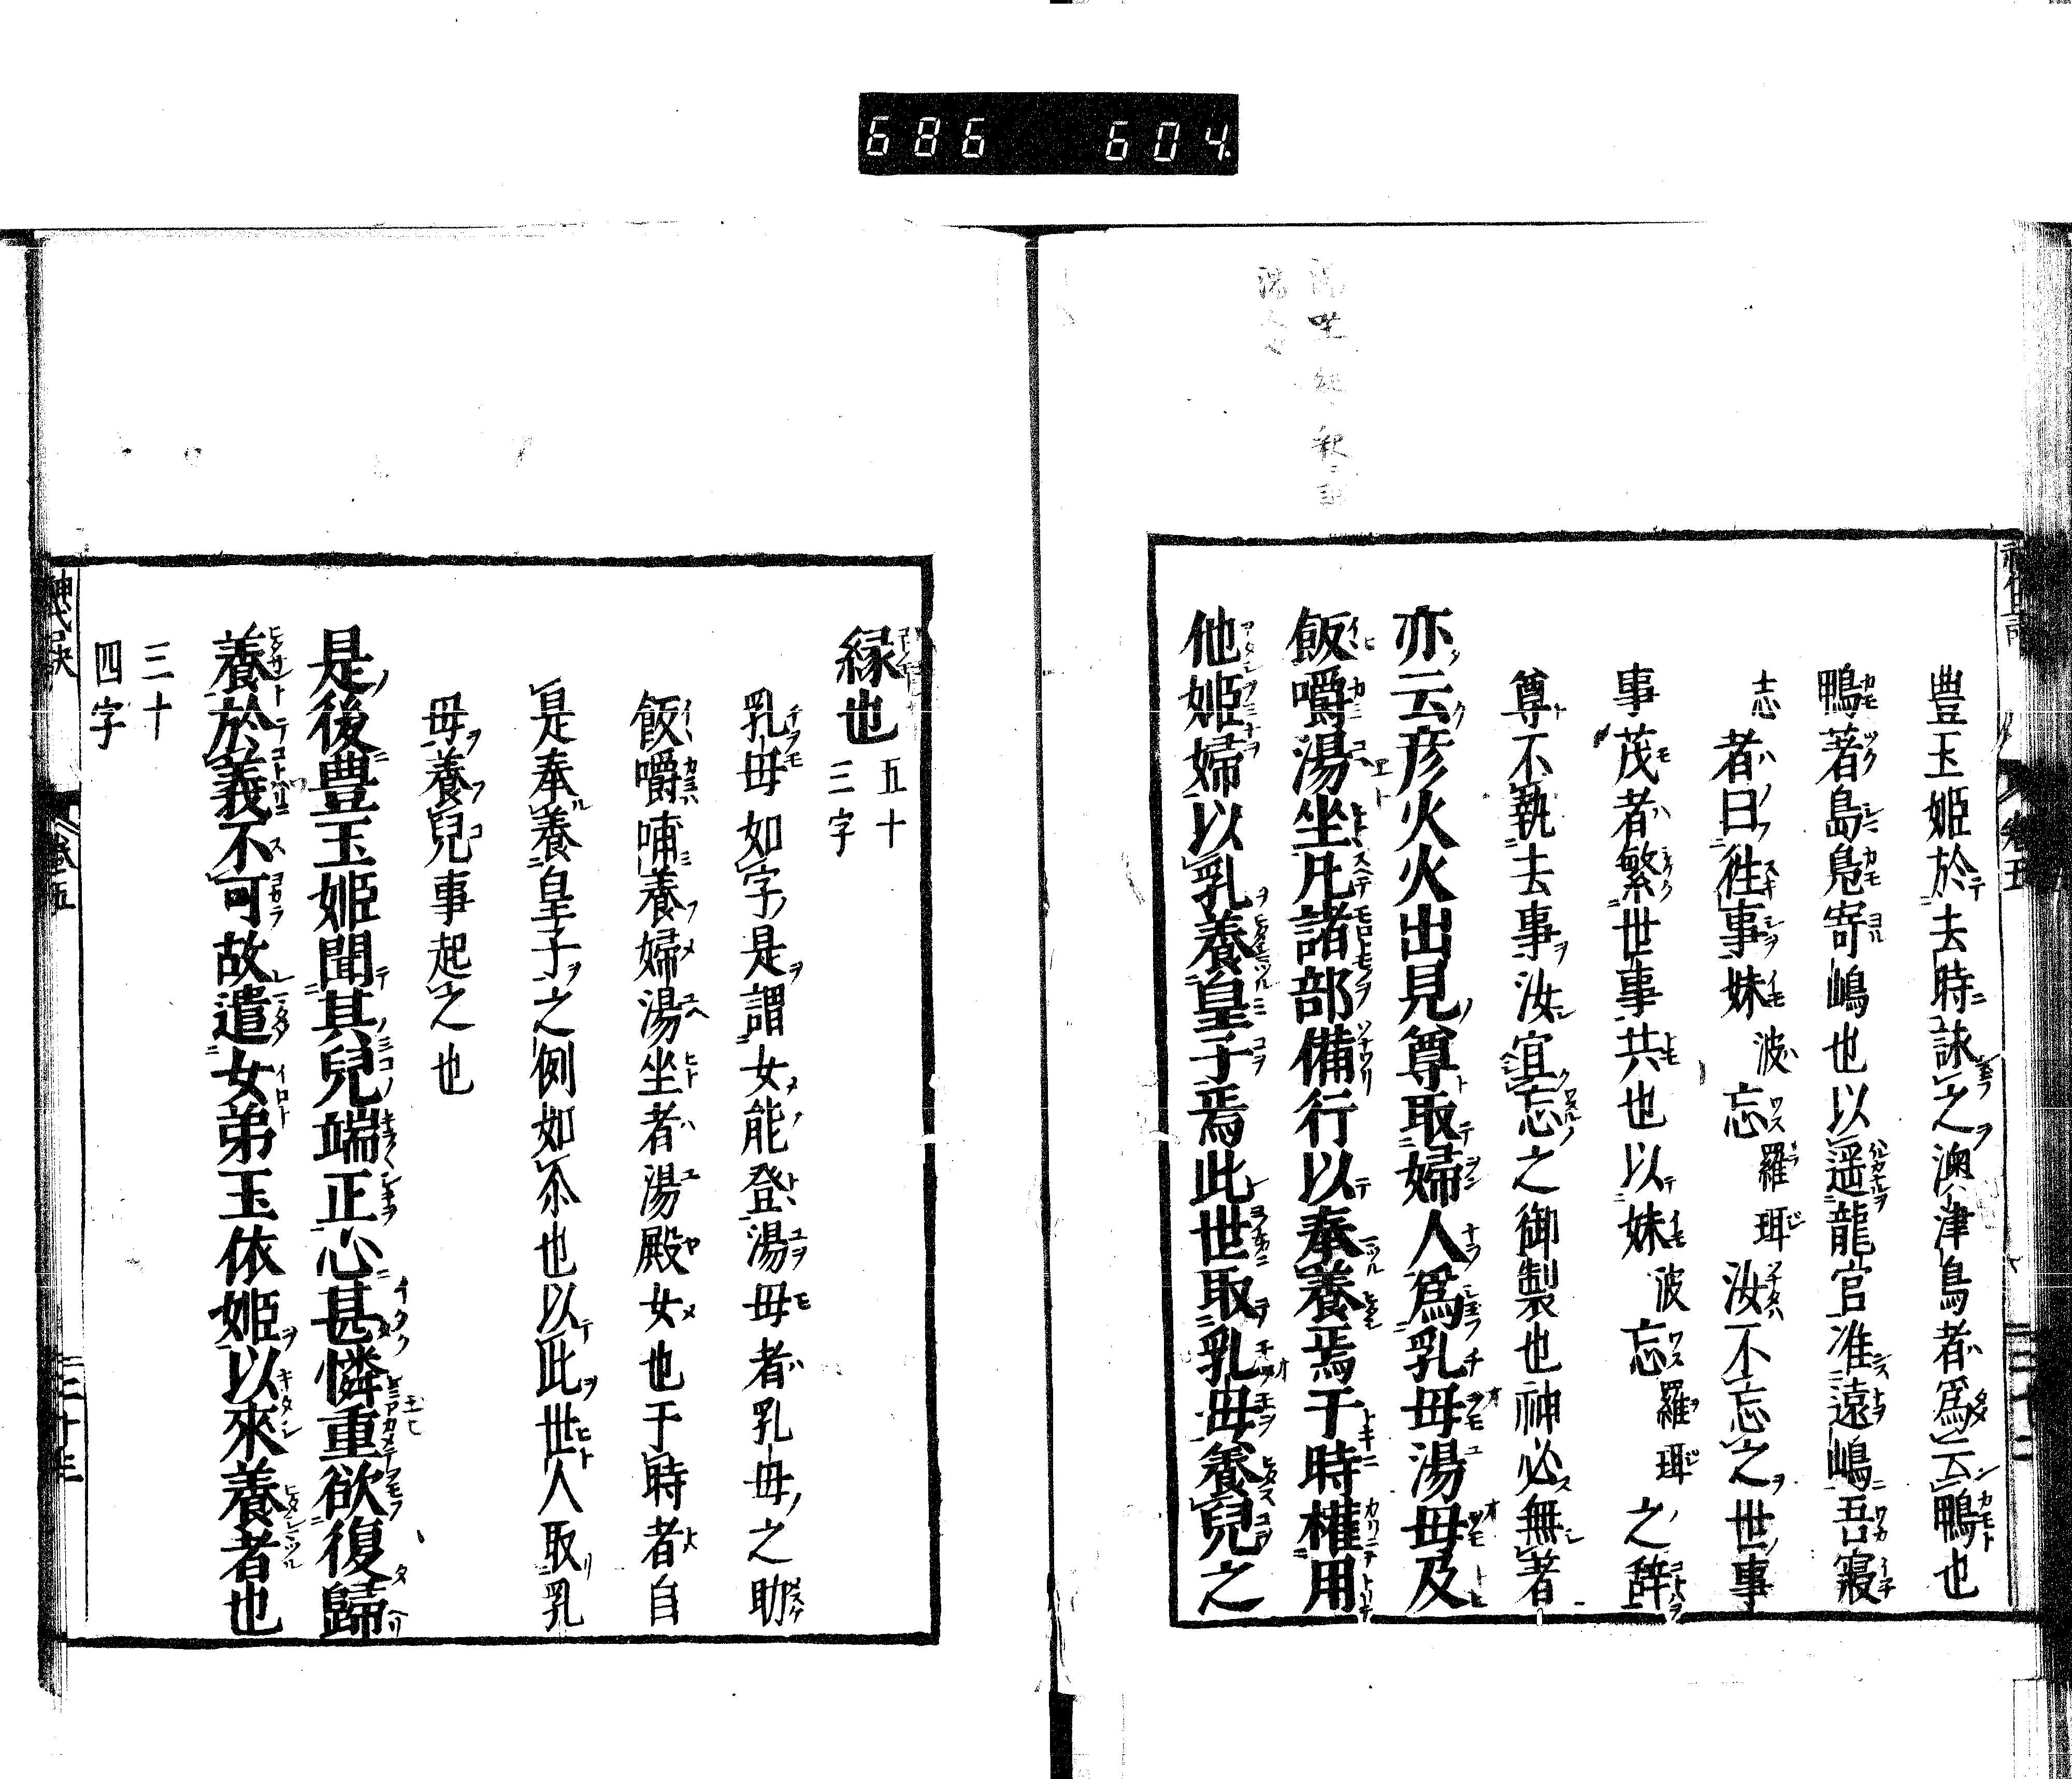 686 604
豊玉姫於去時詠之澳津鳥者爲云鴨也
鴨著島鳬寄嶋也以遥龍宮准遠嶋吾寢
志者曰徃事妹波忘羅珥汝不忘之世事
事茂者繁世事共也以妹波忘羅珥之辞
尊不執去事汝宜忘之御製也神必無著
亦云彦火火出見尊取婦人爲乳母湯母及
飯嚼湯坐凡諸部備行以奉養焉于時權用
他姫婦以乳養皇子焉此世取乳母養兒之
縁也五十三字
乳母如字是謂女能登湯母者乳母之助
飯嚼哺養婦湯坐者湯殿女也于時者自
是奉養皇子之例如尒也以此世人取乳
母養兒事起之也
是後豊玉姫聞其兒端正心甚憐重欲復歸
養於義不可故遣女弟玉依姫以來養者也
三十四字